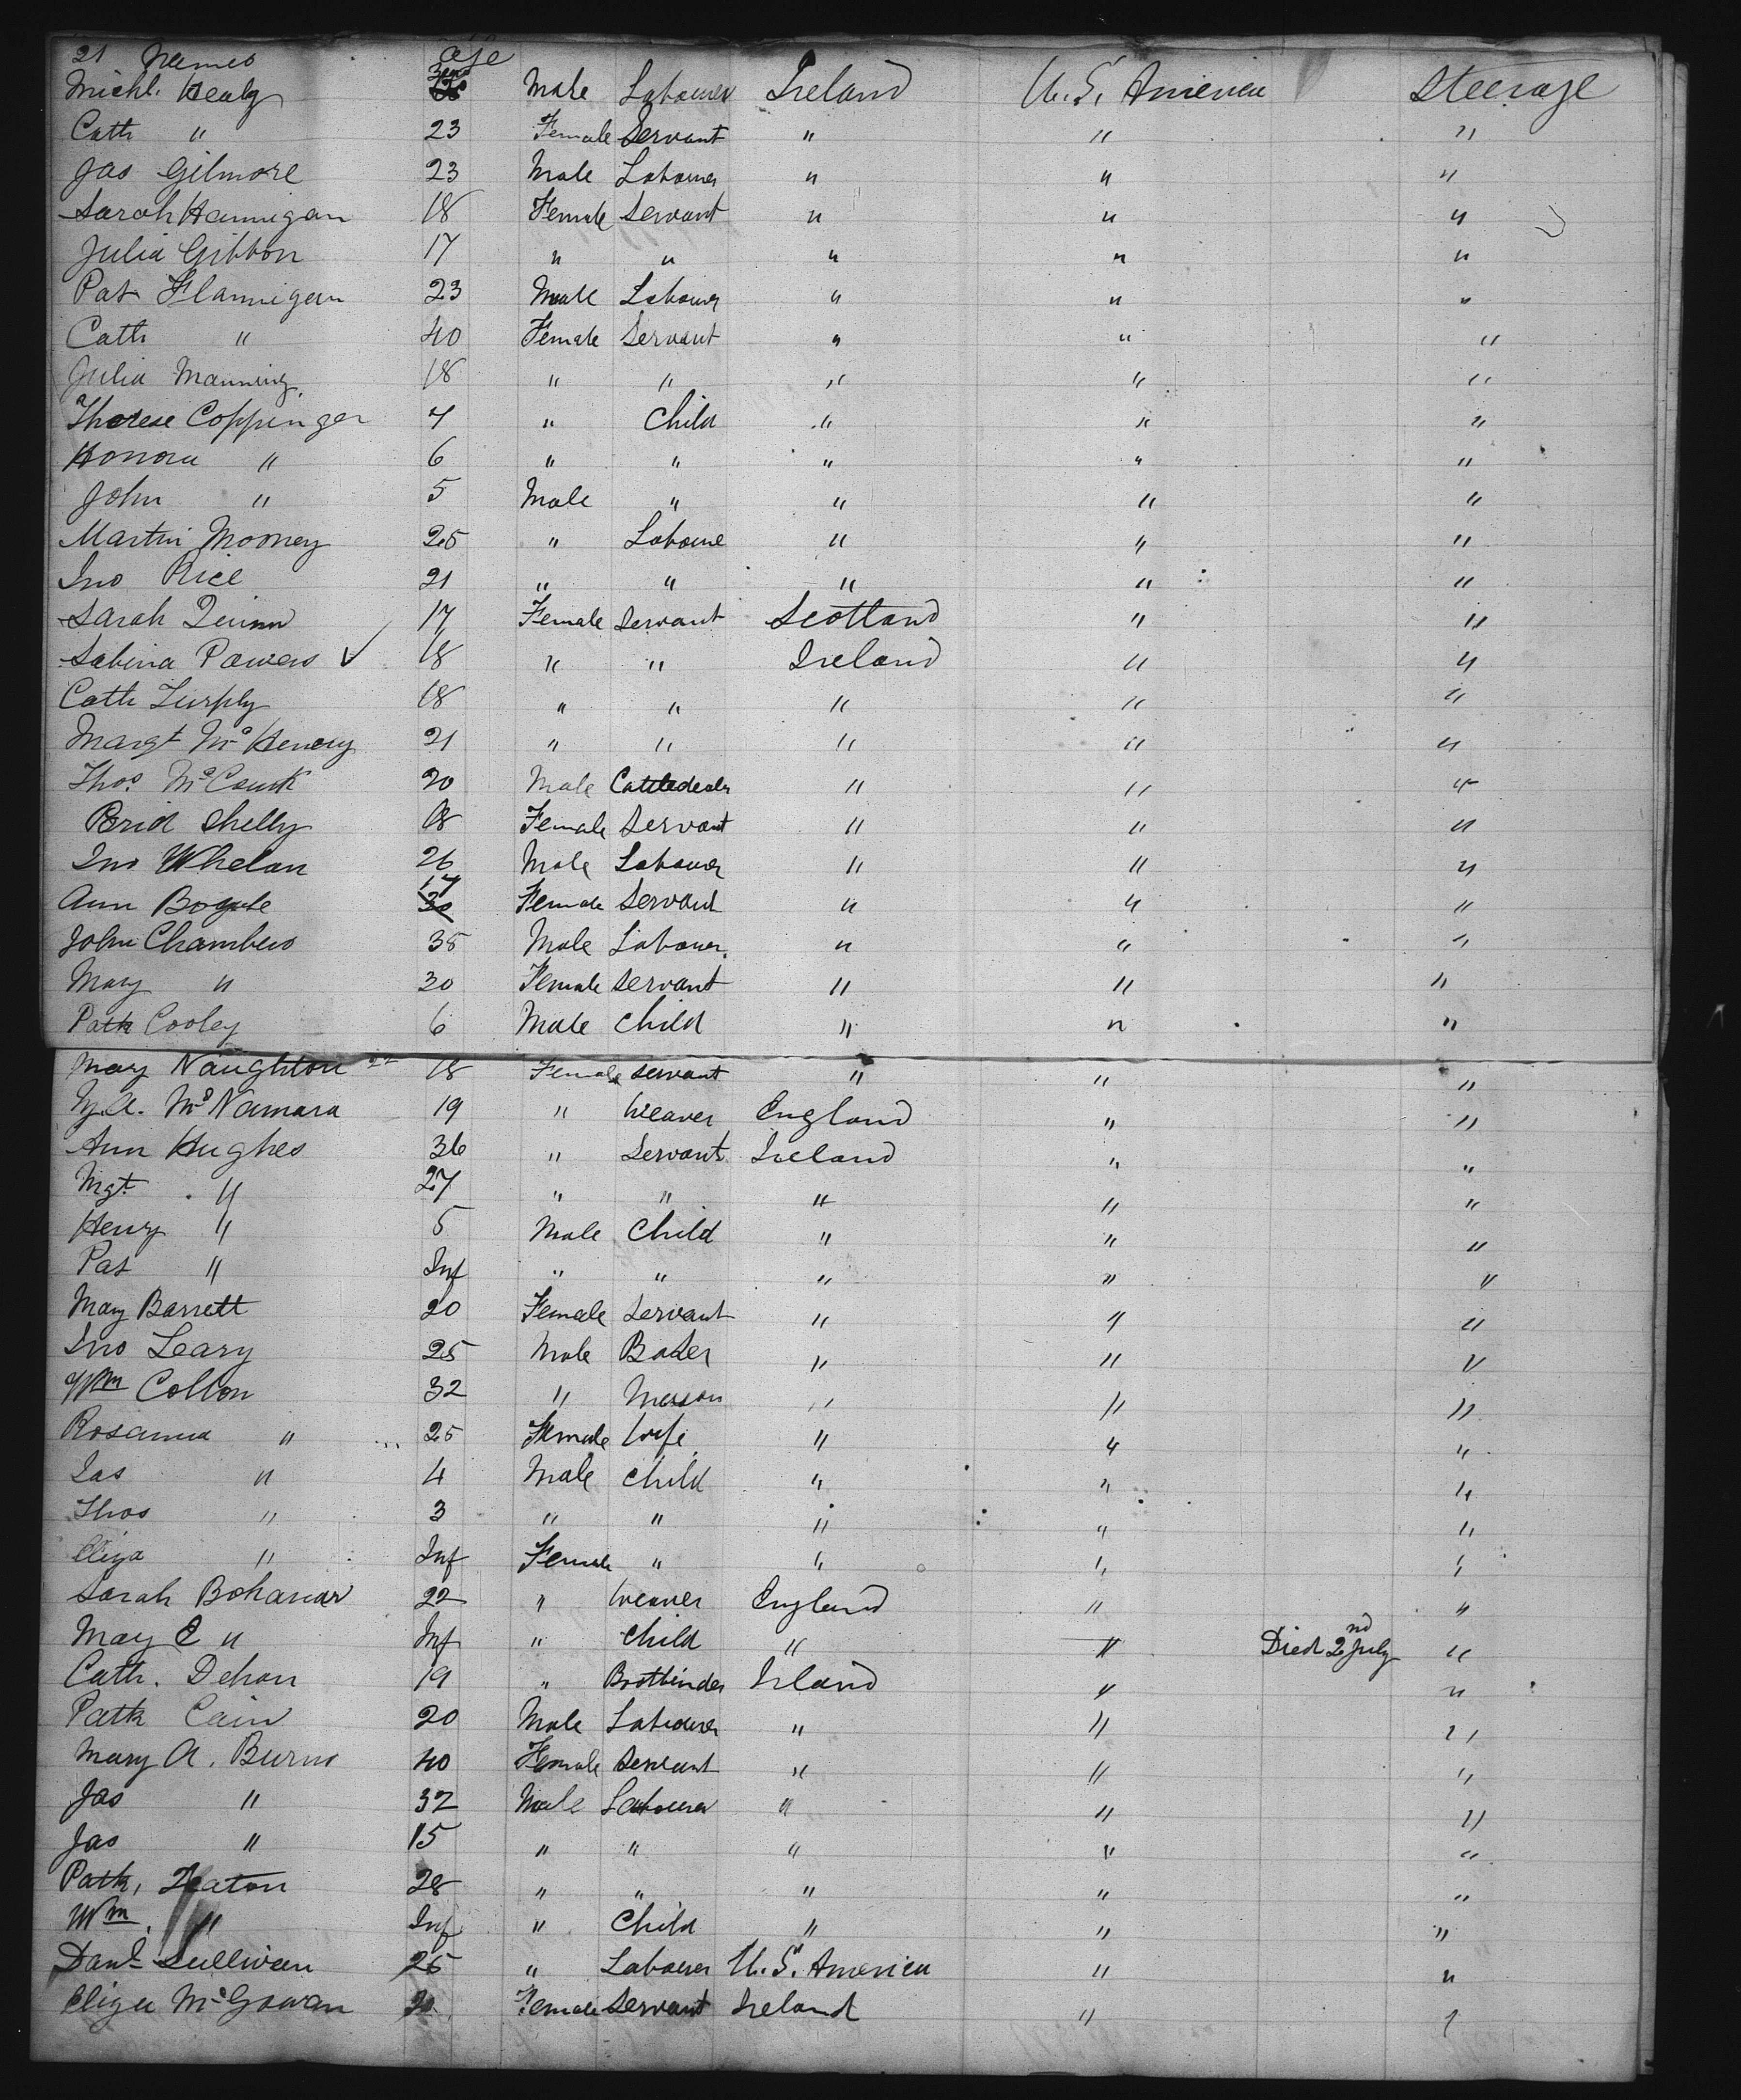 21 Names Age
Michl. Healy Male Labourer Ireland U.S. America Steerage
Cath " 23 Female Servant " " "
Jas Gilmore 23 Male Labourer " " "
Sarah Hannigan 18 Female Servant " " "
Julia Gibbon 17 " " " " "
Pat Flannigan 23 Male Labourer " " "
Cath " 40 Female Servant " " "
Julia Manning 18 " " " " "
Therese Coppinger 7 " Child " " "
Honora " 6 " " " " "
John " 5 Male " " " "
Martin Mooney 25 " Laboure " " "
Jno Rice 21 " " " " "
Sarah Quinn 17 Female Servant Scotland " "
Sabina Powers ✓ 18 " " Ireland " "
Cath 18 " " " " "
Margt McHenery 21 " " " " "
Thos. 20 Male Cattledealer " " "
Brid Shelly 18 Female Servant " " "
Jno Whelan 26 Male Labourer " " "
Ann 17 30 Female Servant " " "
John Chambers 35 Male Labourer " " "
Mary " 30 Female Servant " " "
Patk Cooley 6 Male Child " " "
Mary Naughton 18 Female Servant " " "
M.A. McNamara 19 " Weaver England " "
Ann Hughes 36 " Servant Ireland " "
Mgt. " 27 " " " " "
Henry " 5 Male Child " " "
Pat " Inf " " " " "
Mary Barrett 20 Female Servant " " "
Jno Leary 25 Male Baker " " "
Wm Colton 32 " Mason " " "
Rosanna " 25 Female Wife " " "
Jas " 4 Male Child " " "
Thos " 3 " " " " "
Eliza " Inf Female " " " "
Sarah Bohanar 22 " Weaver England " "
Mary C " Inf " Child " " Died 2nd July "
Cath. Dehan 19 " Ireland " "
Patk Cain 20 Male Labourer " " "
Mary A. Burns 40 Female Servant " " "
Jas " 32 Male Labourer " " "
Jas " 15 " " " " "
Patk, Heaton 28 " " " " "
Wm. " Inf " Child " " "
Danl Sullivan 25 " Labourer U.S. America " "
Eliza McGowan 20 Female Servant Ireland " "